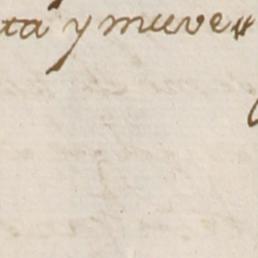 ta y mueve